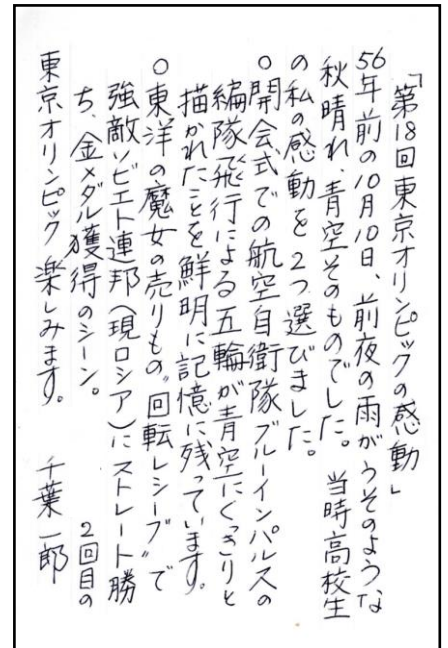 「第18回東京オリンピックの感動」
56年前の10月10日、前夜の雨がうそのような
秋晴れ、青空そのものでした。 当時高校生
の私の感動を2つ選びました。
○開会式での航空自衛隊ブルーインパルスの
編隊飛行による五輪が青空にくっきりと
描かれたことを鮮明に記憶に残っています。
○東洋の魔女の売りもの〝回転レシーブ〟で
強敵ソビエト連邦(現ロシア)にストレート勝
ち、金メダル獲得のシーン。 2回目の
東京オリンピック楽しみます。 千葉一郎